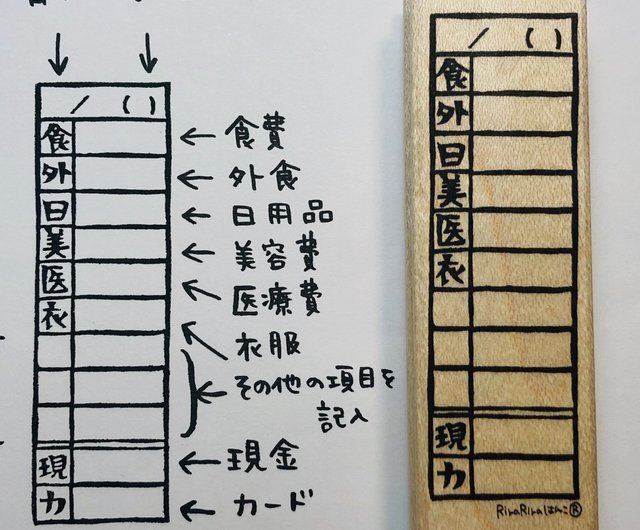 ／ （ ）
食
外
日
美
医
衣
現
カ
← 食費
← 外食
← 日用品
← 美容費
← 医療費
← 衣服
← その他の項目を
記入
← 現金
← カード
／ （ ）
食
外
日
美
医
衣
現
カ
RiraRiraはんこ®